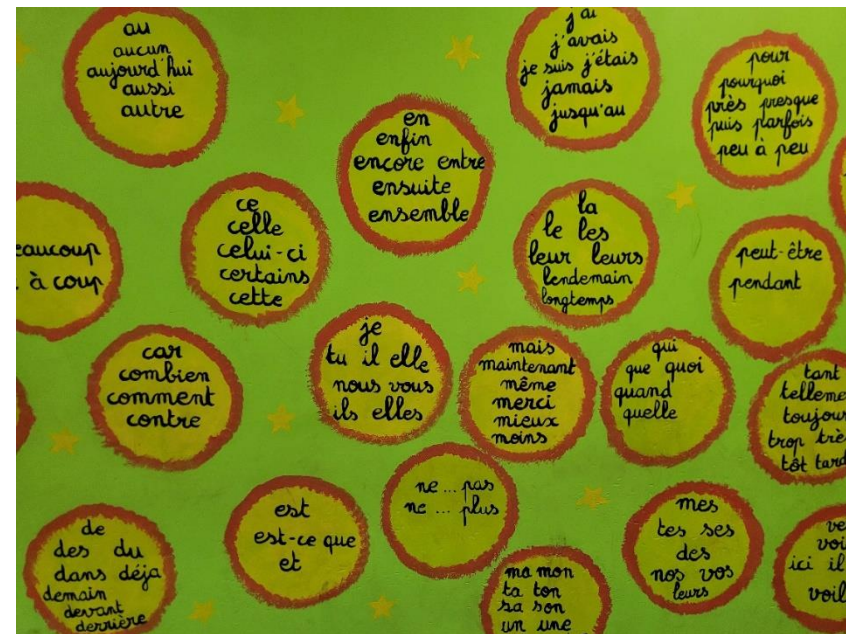 au
aucun
aujourd'hui
aussi
autre
j'ai
j'avais
je suis j'étais
jamais
jusqu'au
pour
pourquoi
près presque
puis parfois
peu à peu
en
enfin
encore entre
ensuite
ensemble
eaucoup
à coup
ce
celle
celui-ci
certains
cette
la
le les
leur leurs
lendemain
longtemps
peut-être
pendant
car
combien
comment
contre
je
tu il elle
nous vous
ils elles
mais
maintenant
même
merci
mieux
moins
qui
que quoi
quand
quelle
tant
telleme
toujou
trop trè
tôt tard
de
des du
dans déja
demain
devant
derrière
est
est-ce que
et
ne ... pas
ne ... plus
ma mon
ta ton
sa son
un une
mes
tes ses
des
nos vos
leurs
ve
voi
ici il
voil